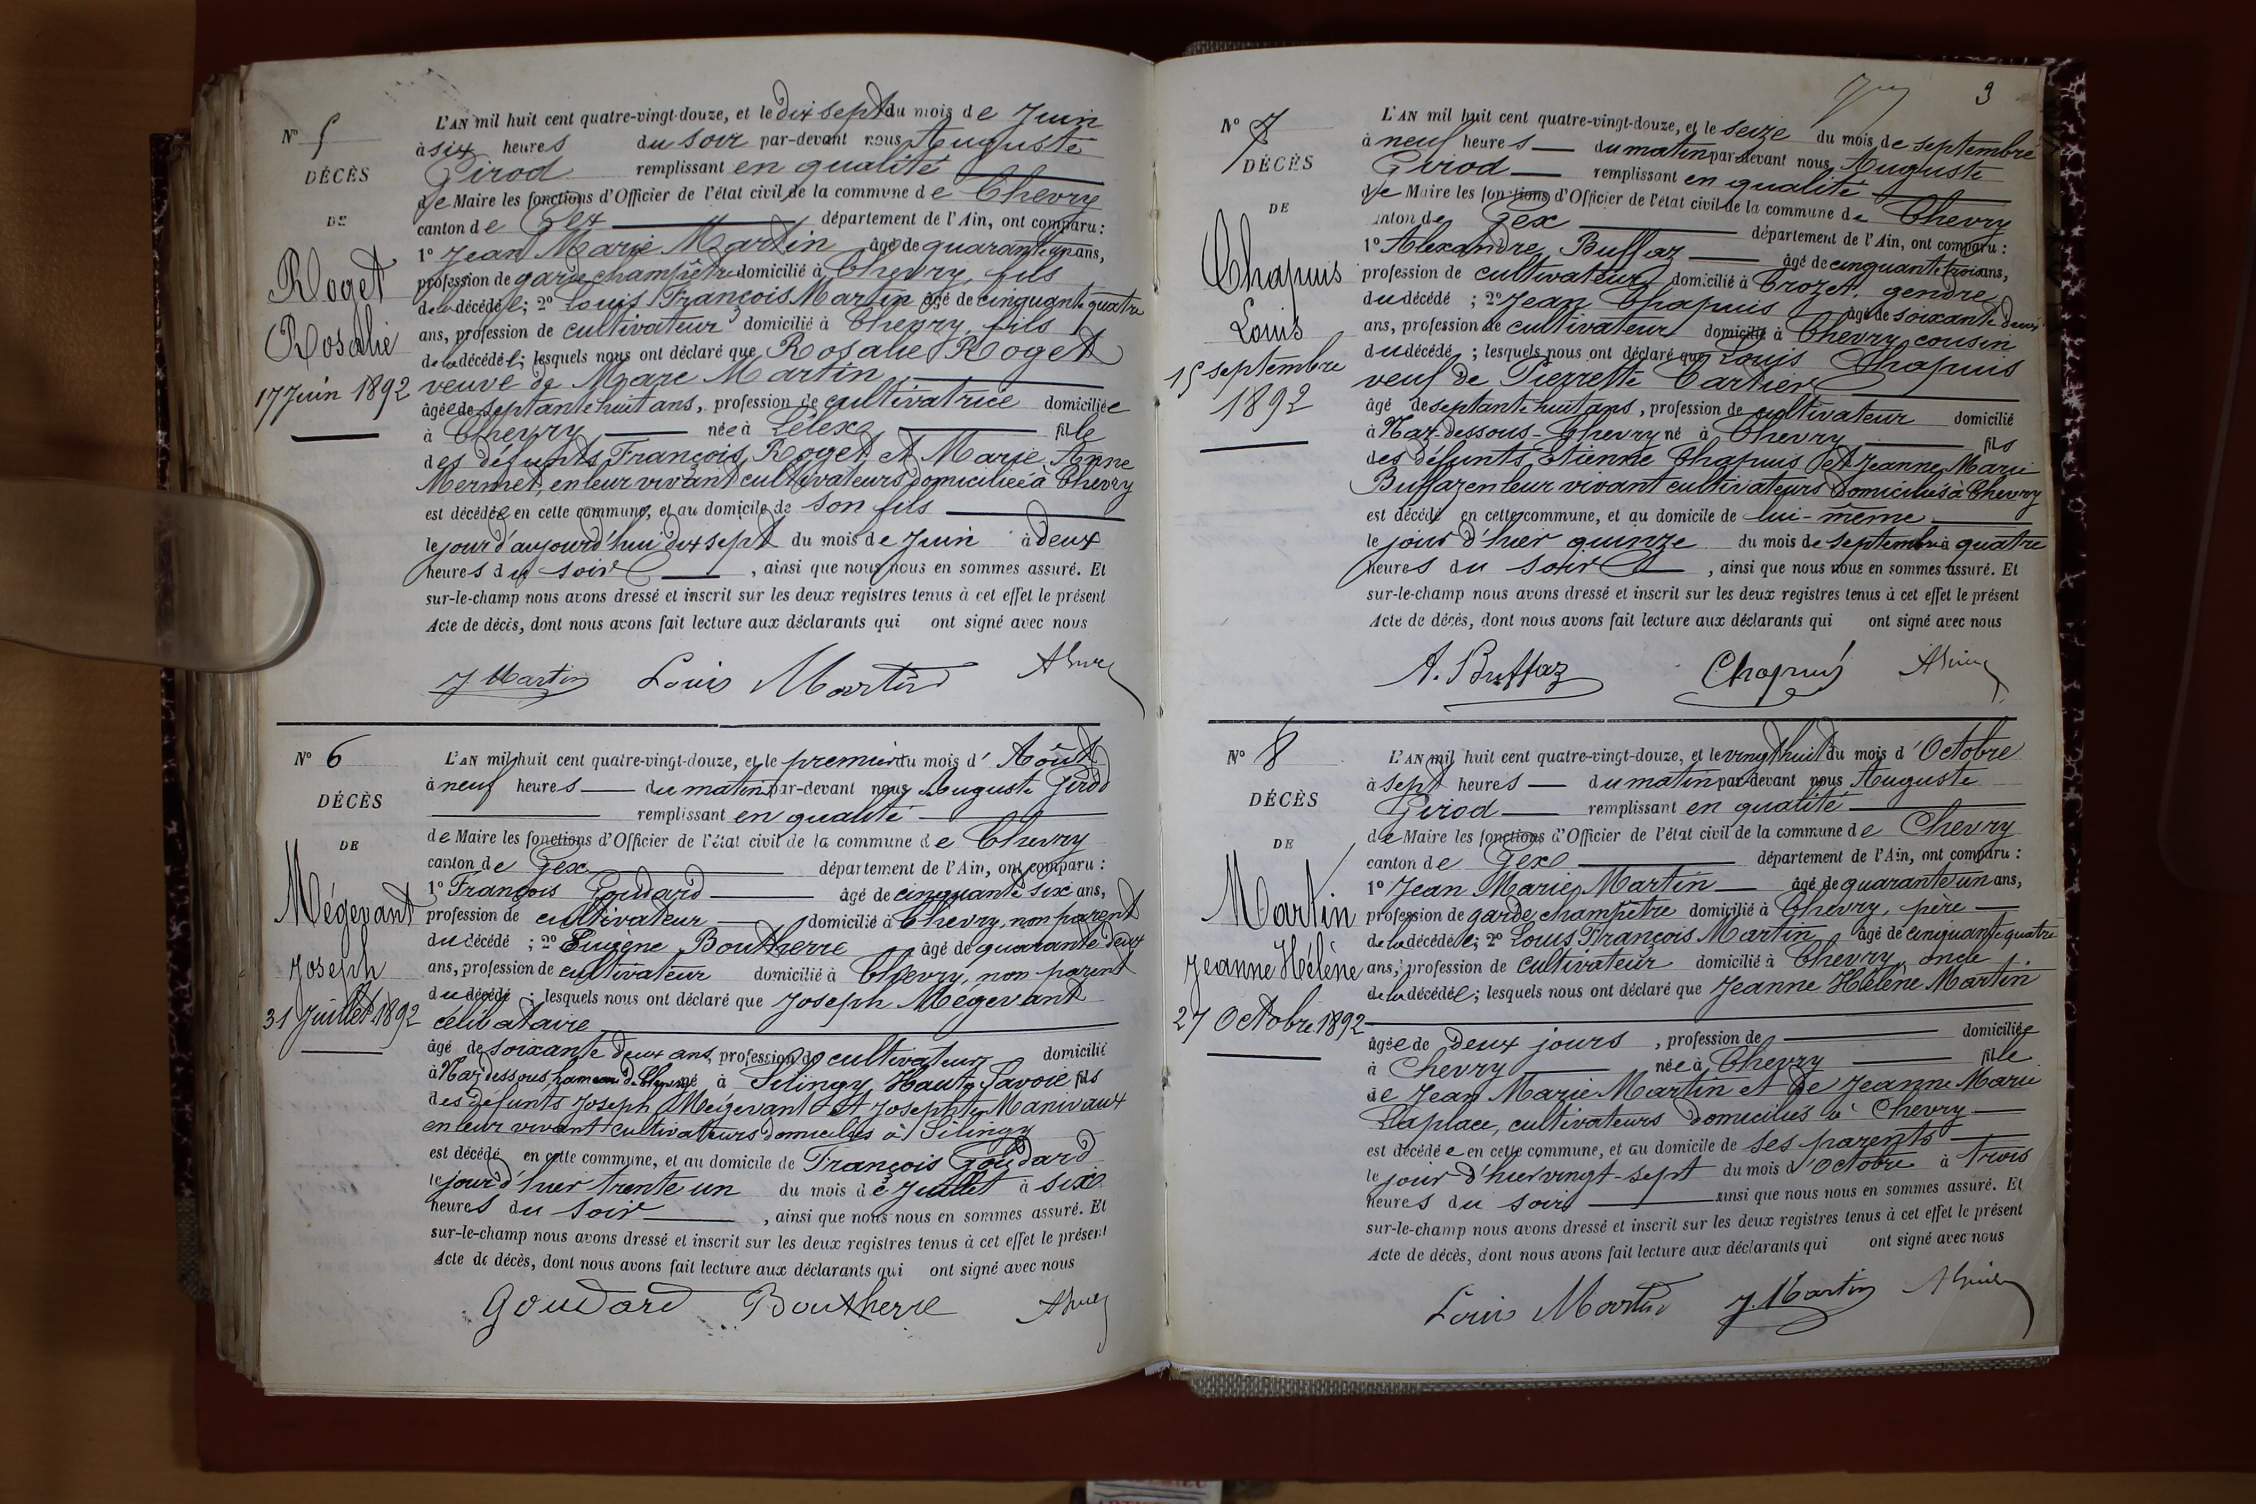 N° 5
DÉCÈS
DE
Roget
Rosalie
17 Juin 1892
L'AN mil huit cent quatre-vingt-douze, et le dix sept du mois de Juin
à six heures du soir par-devant nous Auguste
Girod remplissant en qualité
de Maire les fonctions d'Officier de l'état civil de la commune de Chevry
canton de Gex département de l'Ain, ont comparu :
1° Jean Marie Martin âgé de quarante un ans,
profession de garde champêtre domicilié à Chevry, fils
de la décédée ; 2° Louis François Martin âgé de cinquante quatre
ans, profession de cultivateur domicilié à Chevry, fils
de la décédée ; lesquels nous ont déclaré que Rosalie Roget
veuve de Marc Martin
âgée de septante huit ans, profession de cultivatrice domiciliée
à Chevry née à Lélex fille
des défunts François Roget et Marie Anne
Mermet, en leur vivant cultivateurs domiciliés à Chevry
est décédée en cette commune, et au domicile de son fils
le jour d'aujourd'hui dix sept du mois de Juin à deux
heures du soir , ainsi que nous nous en sommes assuré. Et
sur-le-champ nous avons dressé et inscrit sur les deux registres tenus à cet effet le présent
Acte de décès, dont nous avons fait lecture aux déclarants qui ont signé avec nous
J Martin Louis Martin
N° 6
DÉCÈS
DE
Mégevant
Joseph
31 Juillet 1892
L'AN mil huit cent quatre-vingt-douze, et le premier du mois d'Août
à neuf heures du matin par-devant nous Auguste Girod
remplissant en qualité
de Maire les fonctions d'Officier de l'état civil de la commune de Chevry
canton de Gex département de l'Ain, ont comparu :
1° François Goudard âgé de cinquante six ans,
profession de cultivateur domicilié à Chevry, non parent
du décédé ; 2° Eugène Boutherre âgé de quarante deux
ans, profession de cultivateur domicilié à Chevry, non parent
du décédé ; lesquels nous ont déclaré que Joseph Mégevant
célibataire
âgé de soixante deux ans, profession de cultivateur domicilié
à Naz dessous, hameau de Chevry né à Silingy Haute Savoie fils
des défunts Joseph Mégevant et Josephte Manivaux
en leur vivant cultivateurs domiciliés à Silingy
est décédé en cette commune, et au domicile de François Goudard
le jour d'hier trente un du mois de Juillet à six
heures du soir , ainsi que nous nous en sommes assuré. Et
sur-le-champ nous avons dressé et inscrit sur les deux registres tenus à cet effet le présent
Acte de décès, dont nous avons fait lecture aux déclarants qui ont signé avec nous
Goudard Boutherre
3
N° 7
DÉCÈS
DE
Chapuis
Louis
15 septembre
1892
L'AN mil huit cent quatre-vingt-douze, et le seize du mois de septembre
à neuf heures du matin par-devant nous Auguste
Girod remplissant en qualité
de Maire les fonctions d'Officier de l'état civil de la commune de Chevry
canton de Gex département de l'Ain, ont comparu :
1° Alexandre Buffaz âgé de cinquante trois ans,
profession de cultivateur domicilié à Crozet, gendre
du décédé ; 2° Jean Chapuis âgé de soixante deux
ans, profession de cultivateur domicilié à Chevry cousin
du décédé ; lesquels nous ont déclaré que Louis Chapuis
veuf de Pierrette Cartier
âgé de septante huit ans, profession de cultivateur domicilié
à Naz-dessous-Chevry né à Chevry fils
des défunts Etienne Chapuis et Jeanne Marie
Buffaz en leur vivant cultivateurs domiciliés à Chevry
est décédé en cette commune, et au domicile de lui-même
le jour d'hier quinze du mois de septembre à quatre
heures du soir , ainsi que nous nous en sommes assuré. Et
sur-le-champ nous avons dressé et inscrit sur les deux registres tenus à cet effet le présent
Acte de décès, dont nous avons fait lecture aux déclarants qui ont signé avec nous
A. Buffaz Chapuis
N° 8
DÉCÈS
DE
Martin
Jeanne Hélène
27 Octobre 1892
L'AN mil huit cent quatre-vingt-douze, et le vingt huit du mois d'Octobre
à sept heures du matin par-devant nous Auguste
Girod remplissant en qualité
de Maire les fonctions d'Officier de l'état civil de la commune de Chevry
canton de Gex département de l'Ain, ont comparu :
1° Jean Marie Martin âgé de quarante un ans,
profession de garde champêtre domicilié à Chevry, père
de la décédée ; 2° Louis François Martin âgé de cinquante quatre
ans, profession de cultivateur domicilié à Chevry oncle
de la décédée ; lesquels nous ont déclaré que Jeanne Hélène Martin
âgée de deux jours , profession de domiciliée
à Chevry née à Chevry fille
de Jean Marie Martin et de Jeanne Marie
Laplace, cultivateurs domiciliés à Chevry
est décédée en cette commune, et au domicile de ses parents
le jour d'hier vingt-sept du mois d'Octobre à trois
heures du soir ainsi que nous nous en sommes assuré. Et
sur-le-champ nous avons dressé et inscrit sur les deux registres tenus à cet effet le présent
Acte de décès, dont nous avons fait lecture aux déclarants qui ont signé avec nous
Louis Martin J. Martin